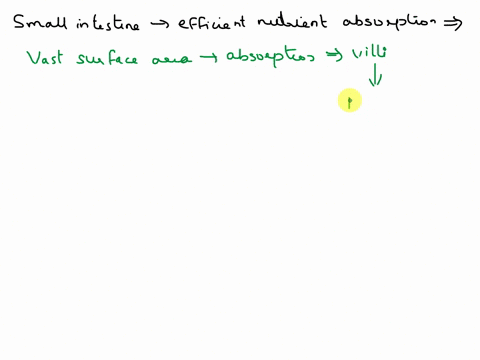 Small intestine → efficient nutrient absorption ⇒
Vast surface area → absorption ⇒ villi
↓